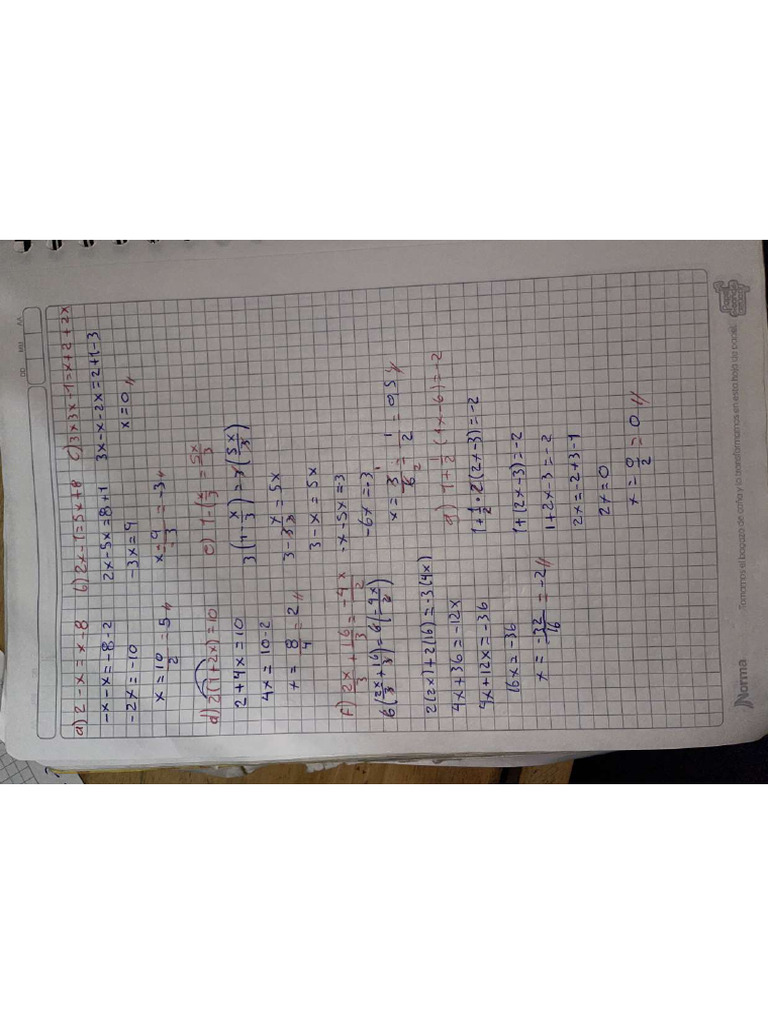 DD MM AA
a) 2-x=x-8
-x-x=-8-2
-2x=-10
x=10/2=5//
b) 2x-1=5x+8
2x-5x=8+1
-3x=9
x=9/-3=-3//
c) 3+3x-1=x+2+2x
3x-x-2x=2+1-3
x=0//
d) 2(1+2x)=10
2+4x=10
4x=10-2
x=8/4=2//
e) 1-(x/3=5x/3
3(1-x/3)=3(5x/3)
3-3x/3=5x
3-x=5x
-x-5x=-3
-6x=-3
x=3/6=1/2=0,5//
f) 2x/3+16/3=-4x/2
6(2x/3+16/3)=6(-4x/2)
2(2x)+2(16)=-3(4x)
4x+36=-12x
4x+12x=-36
16x=-36
x=-32/16=-2//
g) 1+1/2(4x-6)=-2
1+1/2*2(2x-3)=-2
1+(2x-3)=-2
1+2x-3=-2
2x=-2+3-1
2x=0
x=0/2=0//
Norma
Tomamos el bagazo de caña y lo transformamos en esta hoja de papel.